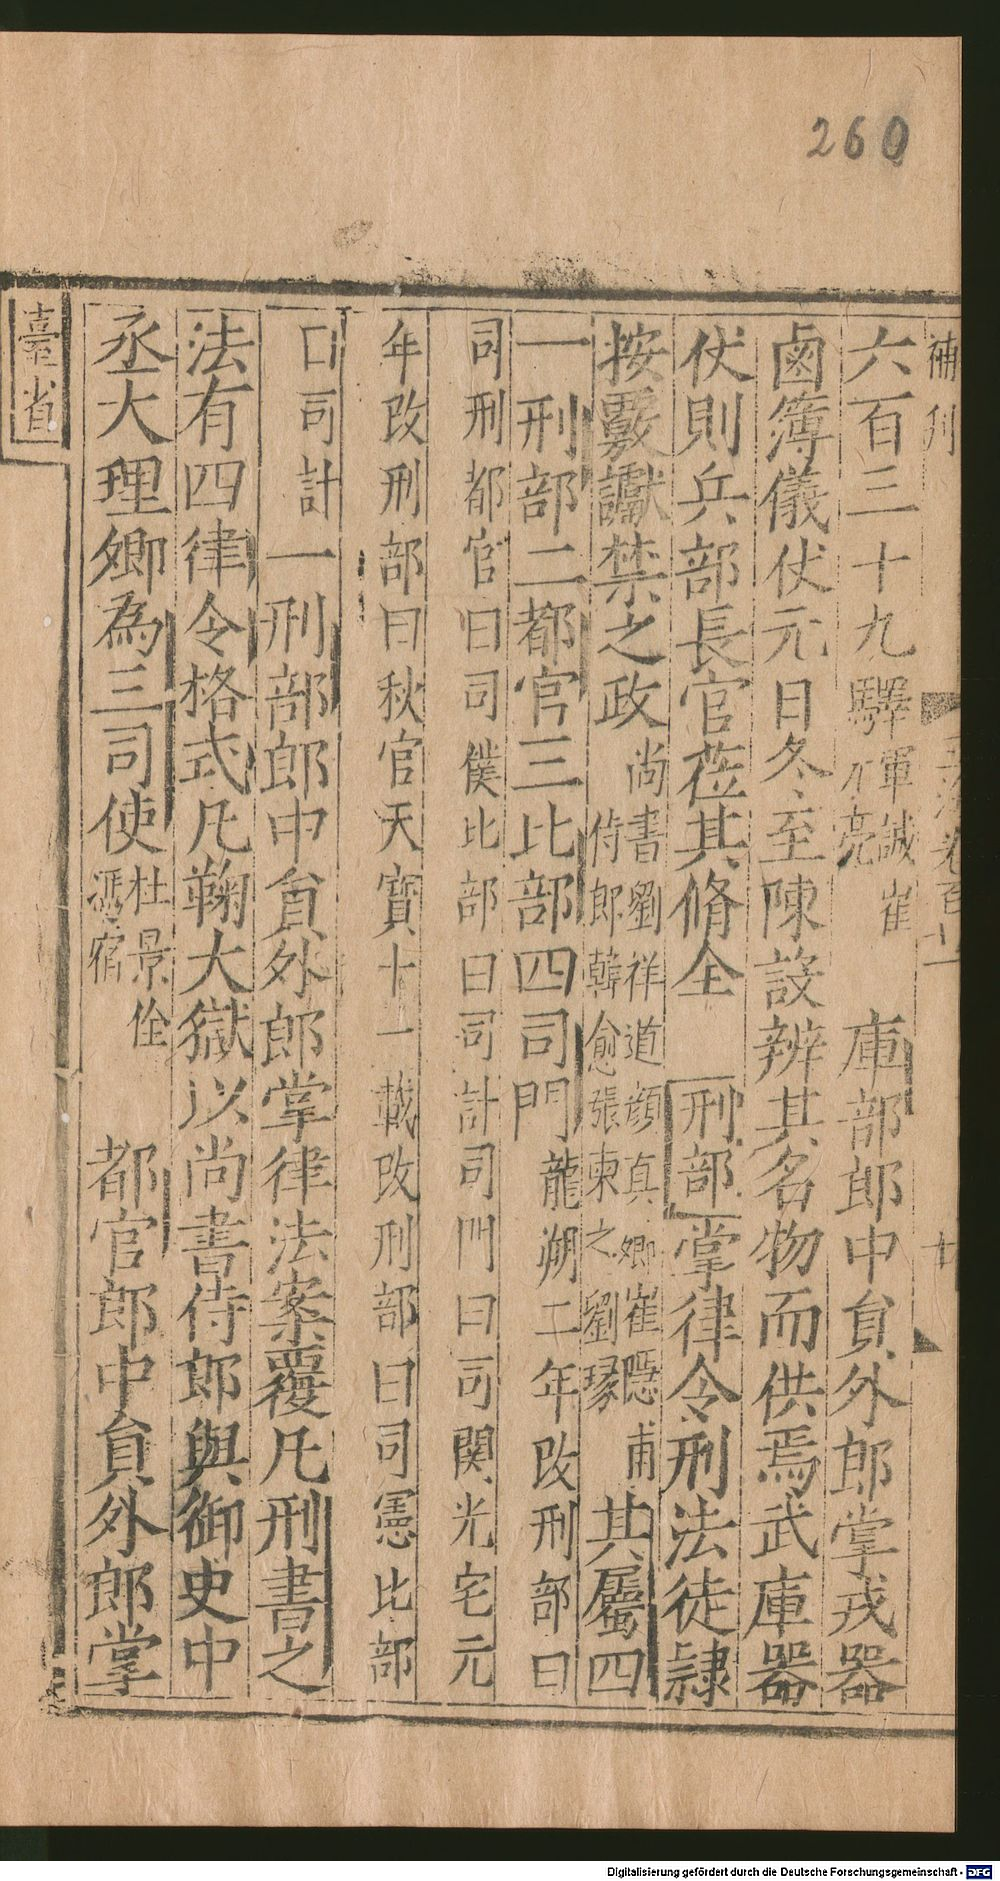 260
補刋
六百三十九驛軍誠崔
亮
庫部郎中貟外郎掌戎器
鹵簿儀伏元日冬至陳設辨其名物而供焉武庫器
伏則兵部長官莅其脩全
刑部掌律令刑法徒隷
按覈讞禁之政
尚書劉祥道顔真卿崔隠甫
侍郎韓愈張柬之劉瑑
其屬四
一刑部二都官三比部四司門龍朔二年改刑部曰
司刑都官曰司僕比部曰司計司門曰司関光宅元
年改刑部曰秋官天寳十一載改刑部曰司憲比部
曰司計一刑部郎中貟外郎掌律法案覆凡刑書之
法有四律令格式凡鞫大獄以尚書侍郎與御史中
丞大理卿為三司使
杜景佺
馮宿
都官郎中貟外郎掌
臺省
Digitalisierung gefördert durch die Deutsche Forschungsgemeinschaft - DFG